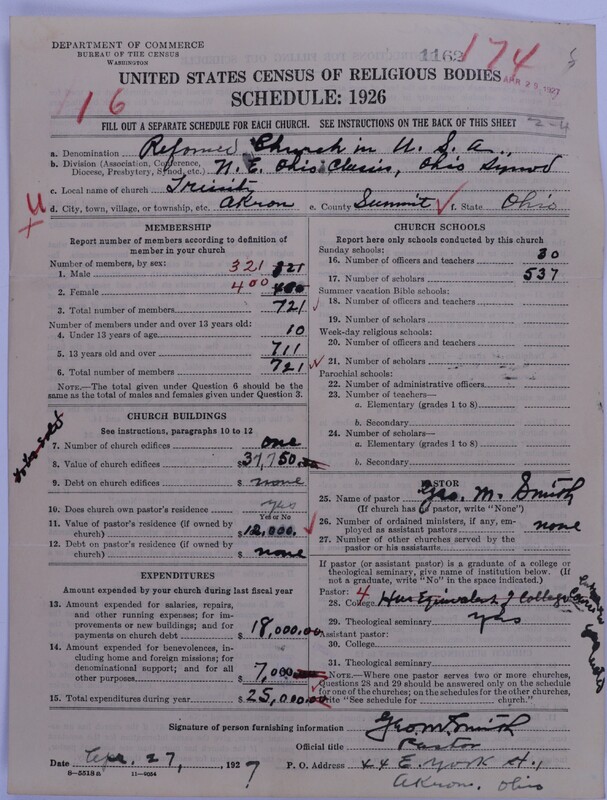 DEPARTMENT OF COMMERCE
BUREAU OF THE CENSUS
WASHINGTON
1162
174
APR 25 1927
UNITED STATES CENSUS OF RELIGIOUS BODIES
16
SCHEDULE: 1926
FILL OUT A SEPARATE SCHEDULE FOR EACH CHURCH. SEE INSTRUCTIONS ON THE BACK OF THIS SHEET
2-4
a. Denomination Reformed Church in U. S. A.,
b. Division (Association, Conference, Diocese, Presbytery, Synod, etc.) N. E. Ohio Classis, Ohio Synod
c. Local name of church Trinity
d. City, town, village, or township, etc. Akron e. County Summit f. State Ohio
MEMBERSHIP
Report number of members according to definition of
member in your church
Number of members, by sex:
1. Male 321 321
2. Female 400 400
3. Total number of members 721
Number of members under and over 13 years old:
4. Under 13 years of age 10
5. 13 years old and over 711
6. Total number of members 721
NOTE.—The total given under Question 6 should be the
same as the total of males and females given under Question 3.
CHURCH BUILDINGS
See instructions, paragraphs 10 to 12
7. Number of church edifices one
8. Value of church edifices $37,750.00
9. Debt on church edifices $none
10. Does church own pastor's residence? yes
Yes or No
11. Value of pastor's residence (if owned by
church) $12,000.
12. Debt on pastor's residence (if owned by
church) $none
EXPENDITURES
Amount expended by your church during last fiscal year
13. Amount expended for salaries, repairs,
and other running expenses; for im-
provements or new buildings; and for
payments on church debt $18,000.00
14. Amount expended for benevolences,
including home and foreign missions; for
denominational support; and for all
other purposes $7,000
15. Total expenditures during year $25,000.00
CHURCH SCHOOLS
Report here only schools conducted by this church
Sunday schools:
16. Number of officers and teachers 30
17. Number of scholars 537
Summer vacation Bible schools:
18. Number of officers and teachers
19. Number of scholars
Week-day religious schools:
20. Number of officers and teachers
21. Number of scholars
Parochial schools:
22. Number of administrative officers
23. Number of teachers—
a. Elementary (grades 1 to 8)
b. Secondary
24. Number of scholars—
a. Elementary (grades 1 to 8)
b. Secondary
PASTOR
25. Name of pastor Geo. M. Smith
(If church has no pastor, write "None")
26. Number of ordained ministers, if any, em-
ployed as assistant pastors none
27. Number of other churches served by the
pastor or his assistants
If pastor (or assistant pastor) is a graduate of a college or
theological seminary, give name of institution below. (If
not a graduate, write "No" in the space indicated.)
Pastor: 4
28. College Has Equivalent of College
29. Theological seminary yes
Assistant pastor:
30. College
31. Theological seminary
NOTE.—Where one pastor serves two or more churches,
Questions 28 and 29 should be answered only on the schedule
for one of the churches; on the schedules for the other churches,
write "See schedule for church."
Signature of person furnishing information Geo M Smith
Official title Pastor
Date Apr. 27, 1927
P. O. Address 44 E. York St.,
8-5518a 11-9054
Akron, Ohio